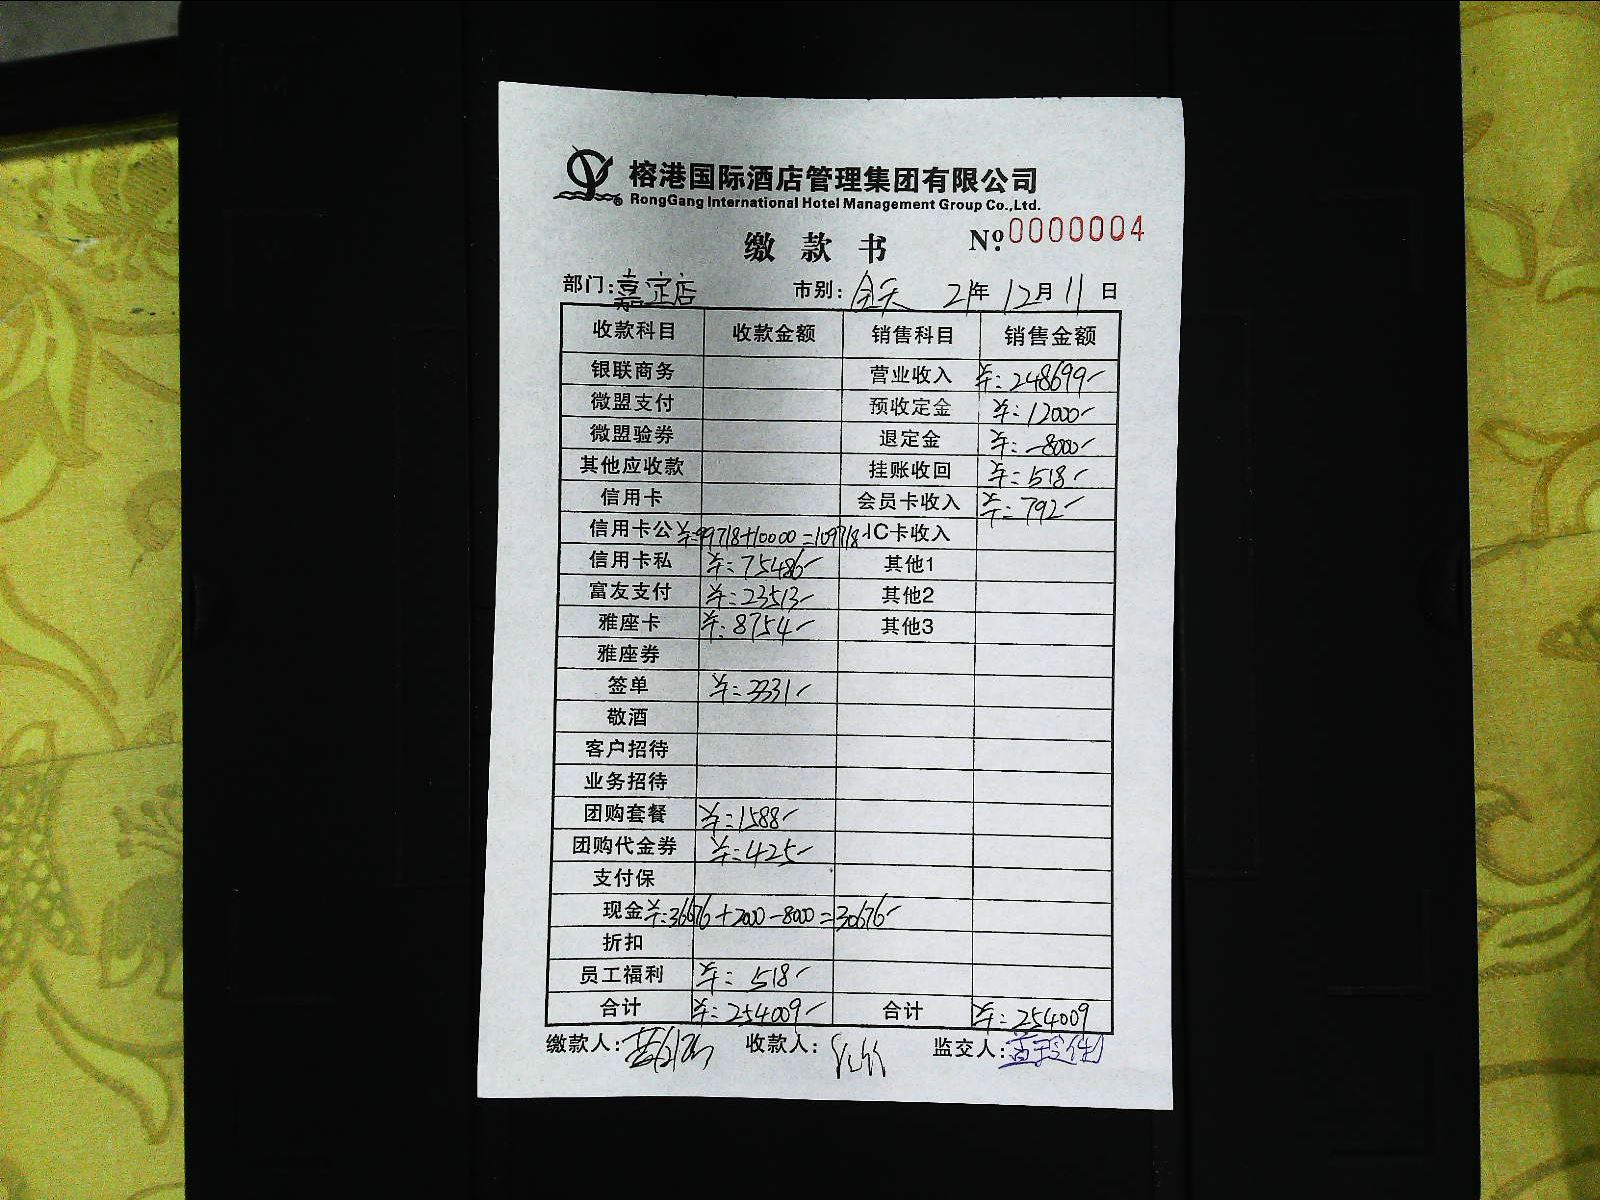 榕港国际酒店管理集团有限公司
RongGang International Hotel Management Group Co.,Ltd.
缴款书 №:0000004
部门:嘉定店 市别:全天 21年12月11日
收款科目 收款金额 销售科目 销售金额
银联商务 营业收入 ¥:248699-
微盟支付 预收定金 ¥:12000-
微盟验券 退定金 ¥:-8000-
其他应收款 挂账收回 ¥:518-
信用卡 会员卡收入 ¥:792-
信用卡公 ¥:99718+10000=109718 IC卡收入
信用卡私 ¥:75486- 其他1
富友支付 ¥:23513- 其他2
雅座卡 ¥:8754- 其他3
雅座券
签单 ¥:3331-
敬酒
客户招待
业务招待
团购套餐 ¥:1588-
团购代金券 ¥:425-
支付保
现金 ¥:36676+2000-8000=30676-
折扣
员工福利 ¥:518-
合计 ¥:254009- 合计 ¥:254009
缴款人: 收款人: 监交人: